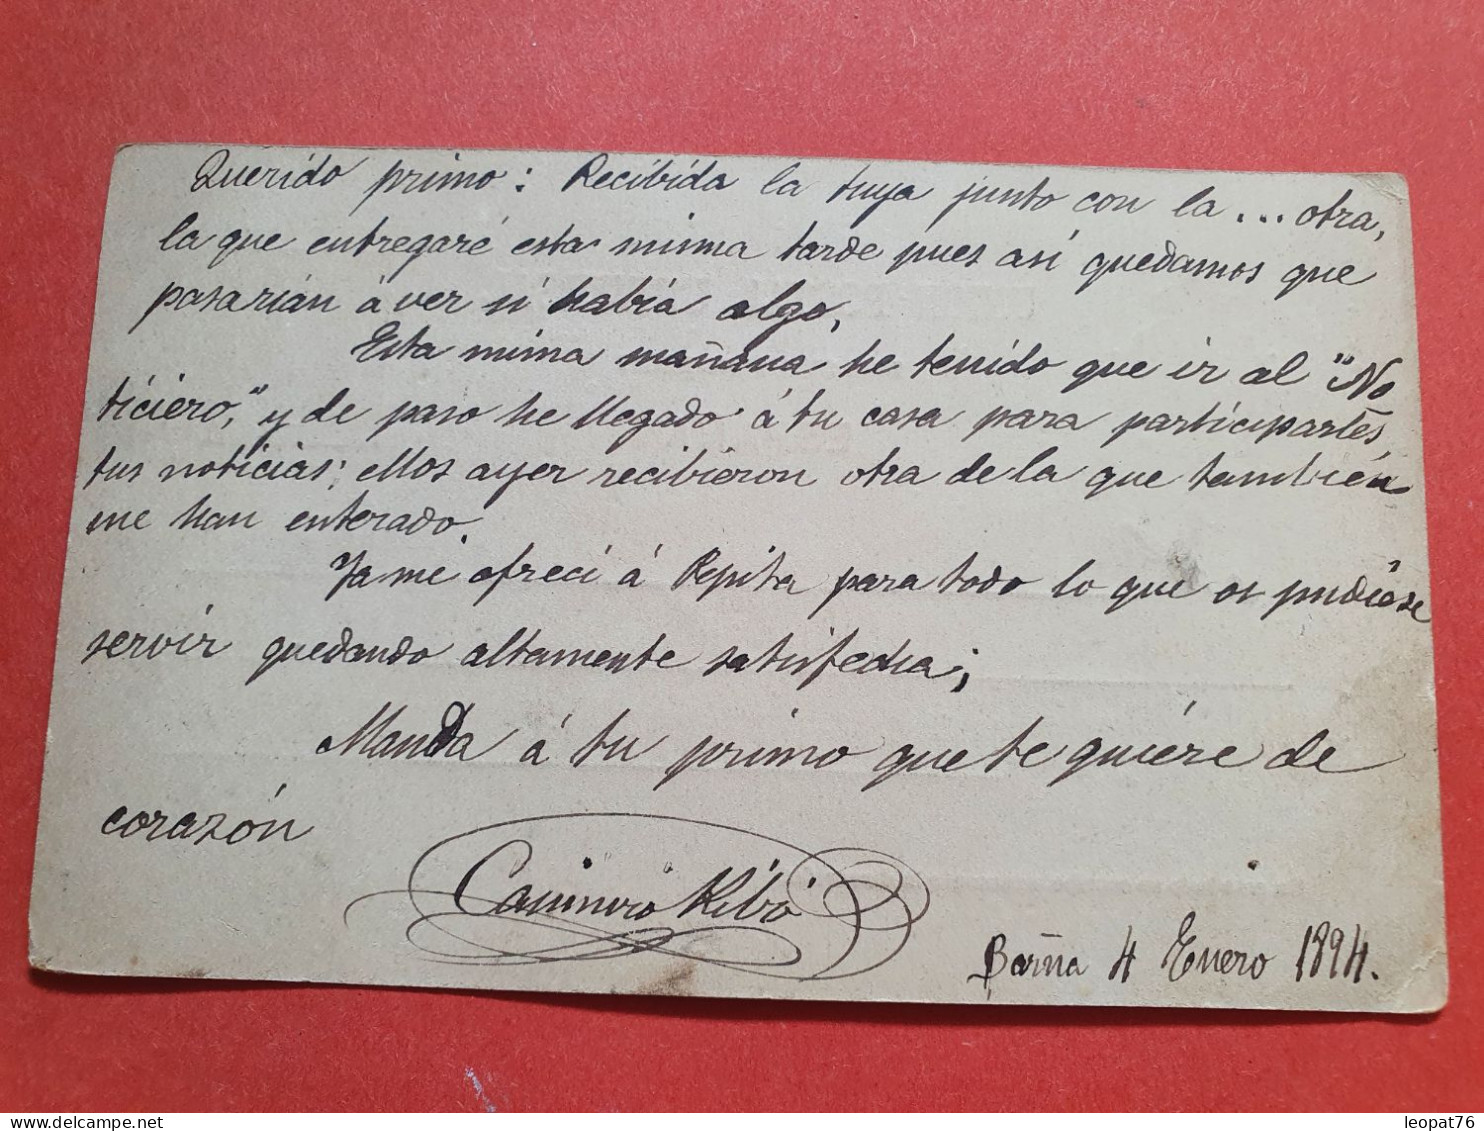 Querido primo: Recibida la tuya junto con la ... otra,
la que entregaré esta misma tarde pues así quedamos que
pasarián á ver si había algo.
Esta misma mañana he tenido que ir al "No
ticiero," y de paso he llegado á tu casa para participartes
tus noticias; ellos ayer recibieron otra de la que también
me han enterado.
Ya me ofrecí á Pepita para todo lo que os pudiese
servir quedando altamente satisfecha;
Manda á tu primo que te quiére de
corazón
Casimiro Ribó
Barña 4 Enero 1894.
leopat76